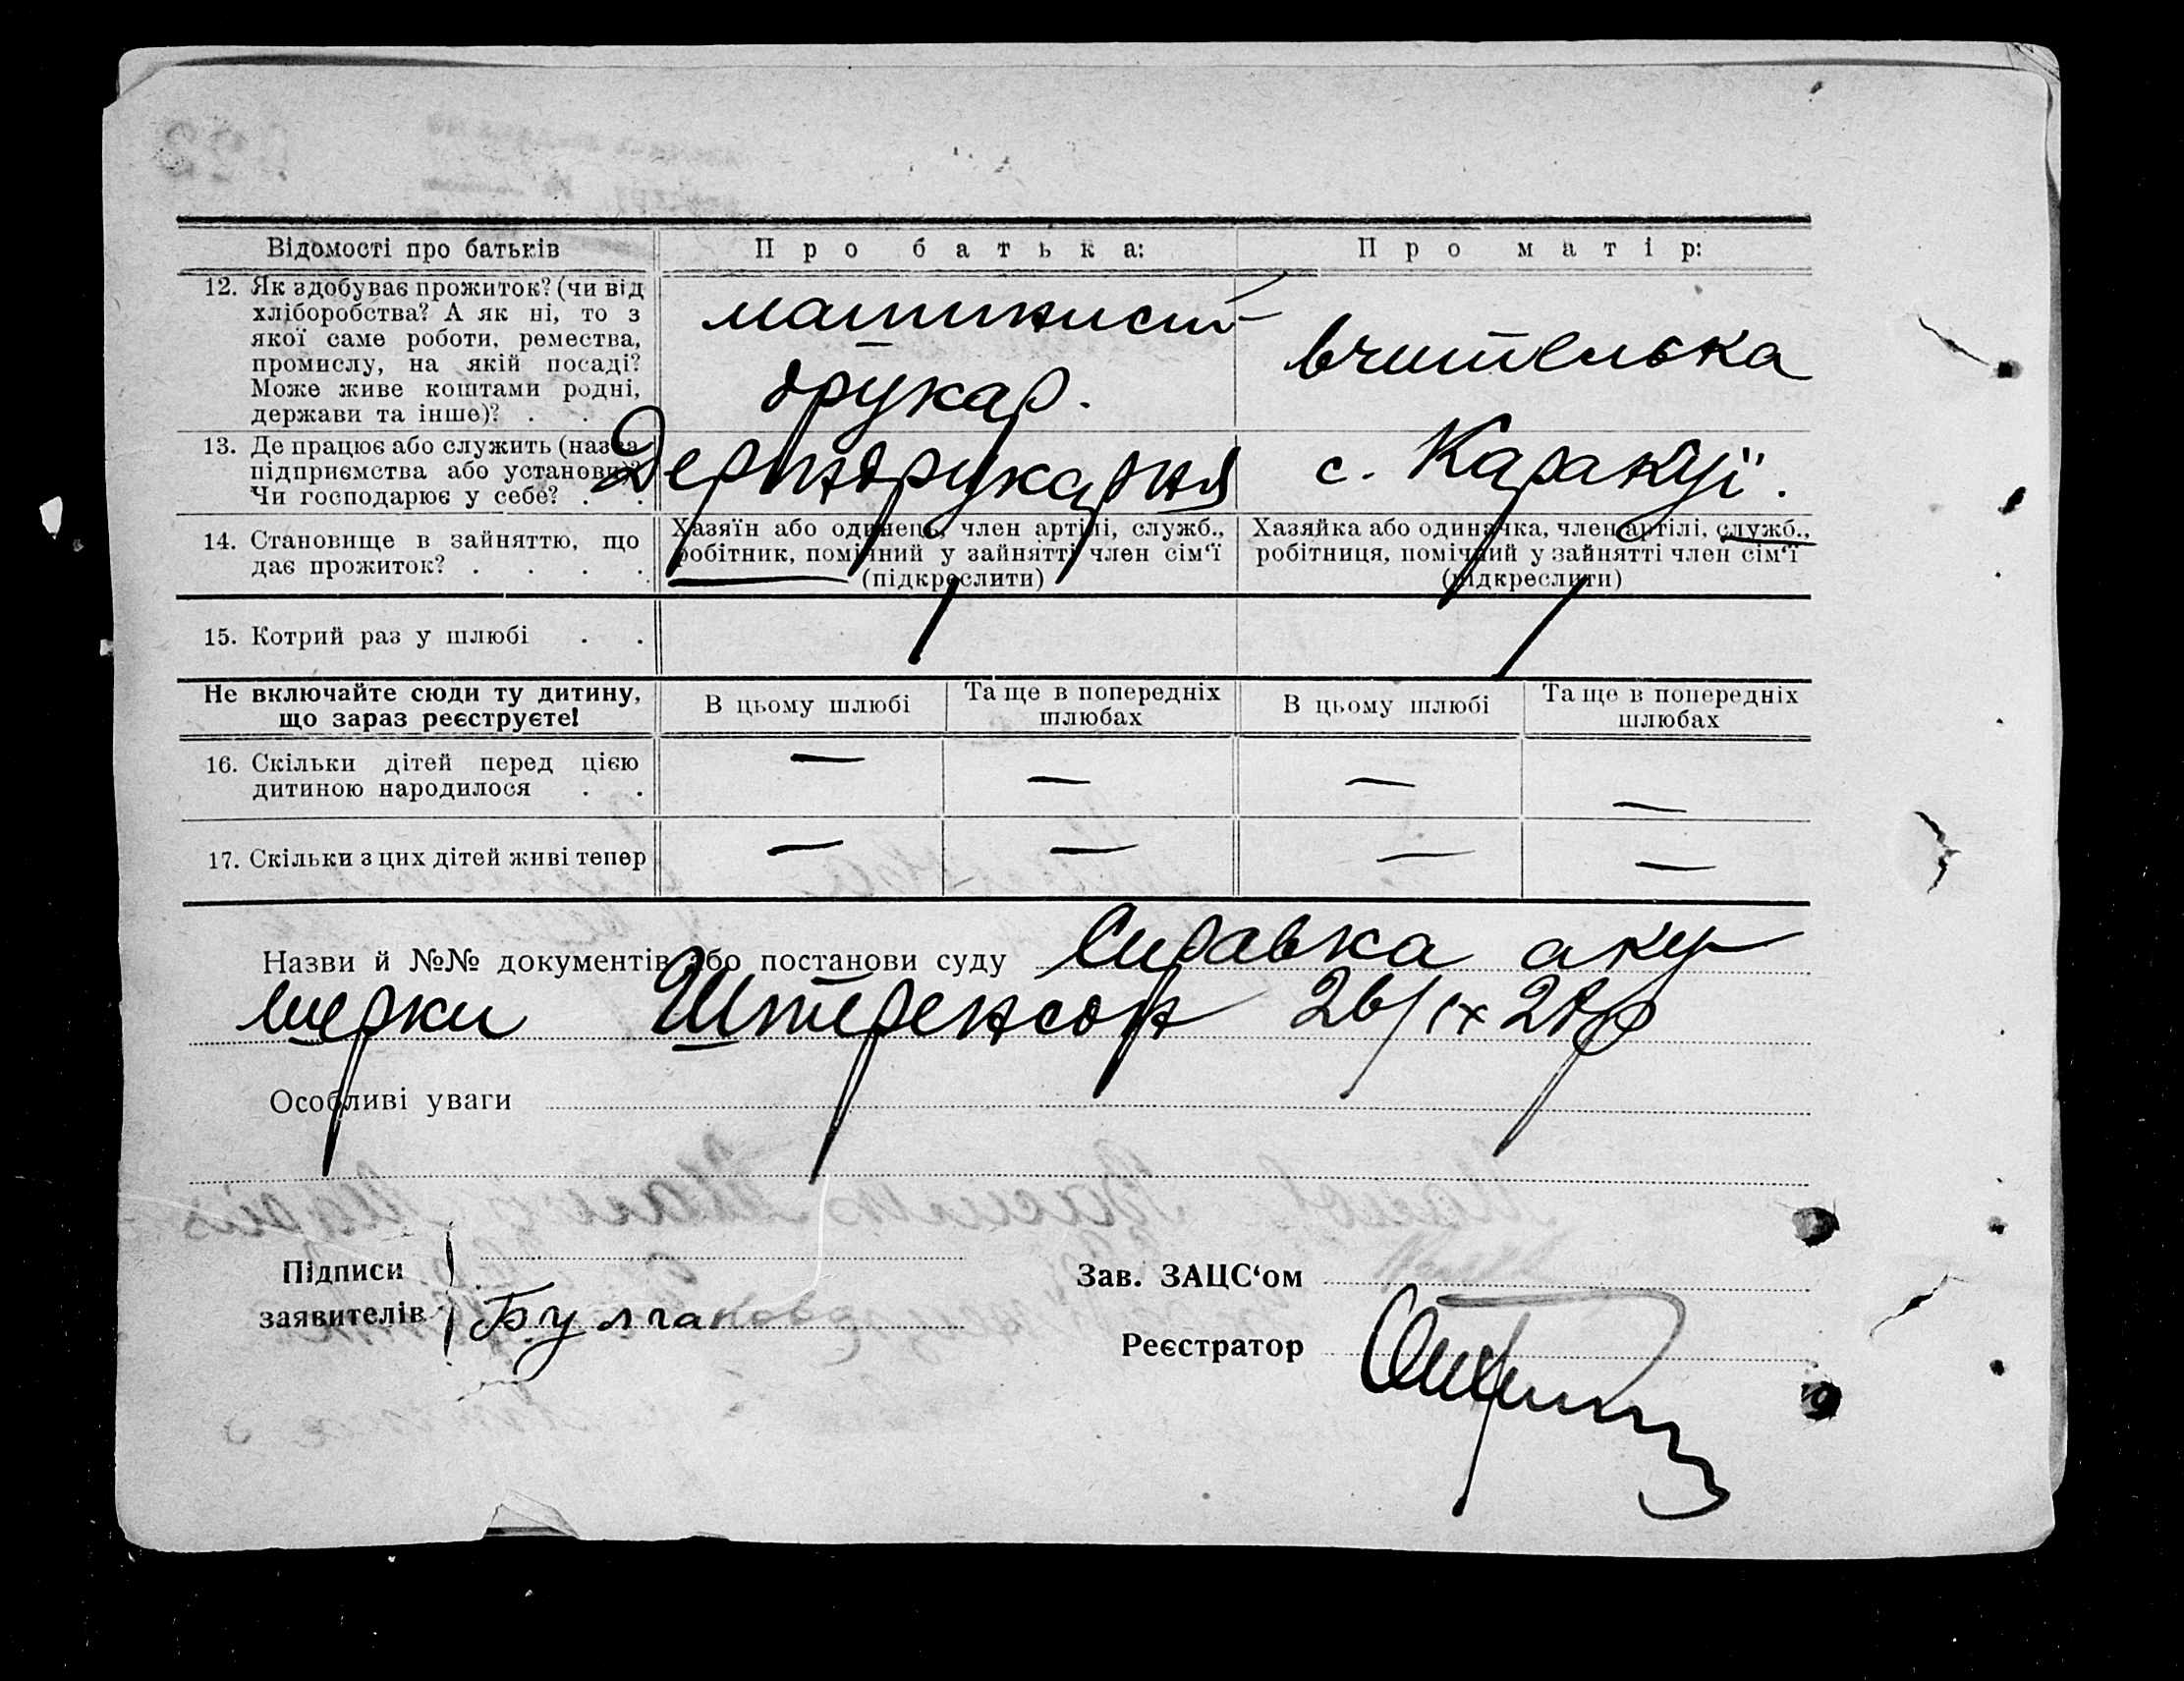 Відомості про батьків
Про батька:
Про матір:
12. Як здобуває прожиток? (чи від
хліборобства? А як ні, то з
якої саме роботи, ремества,
промислу, на якій посаді?
Може живе коштами родні,
держави та інше)? . .
машинист
друкар.
вчителька
13. Де працює або служить (назва
підприємства або установи)?
Чи господарює у себе? . .
Держдрукарня
с. Каракуї.
14. Становище в зайняттю, що
дає прожиток? . . . .
Хазяїн або одинець, член артілі, служб.,
робітник, помічний у зайнятті член сім‘ї
(підкреслити)
Хазяйка або одиначка, член артілі, служб.,
робітниця, помічний у зайнятті член сім‘ї
(підкреслити)
15. Котрий раз у шлюбі . .
1
1
Не включайте сюди ту дитину,
що зараз реєструєте!
В цьому шлюбі
Та ще в попередніх
шлюбах
В цьому шлюбі
Та ще в попередніх
шлюбах
16. Скільки дітей перед цією
дитиною народилося . .
— — — —
17. Скільки з цих дітей живі тепер
— — — —
Назви й №№ документів або постанови суду Справка аку
шерки Штеренсон 26/IX 28р
Особливі уваги
Підписи
заявителів
Булгакова
Зав. ЗАЦС‘ом
Реєстратор